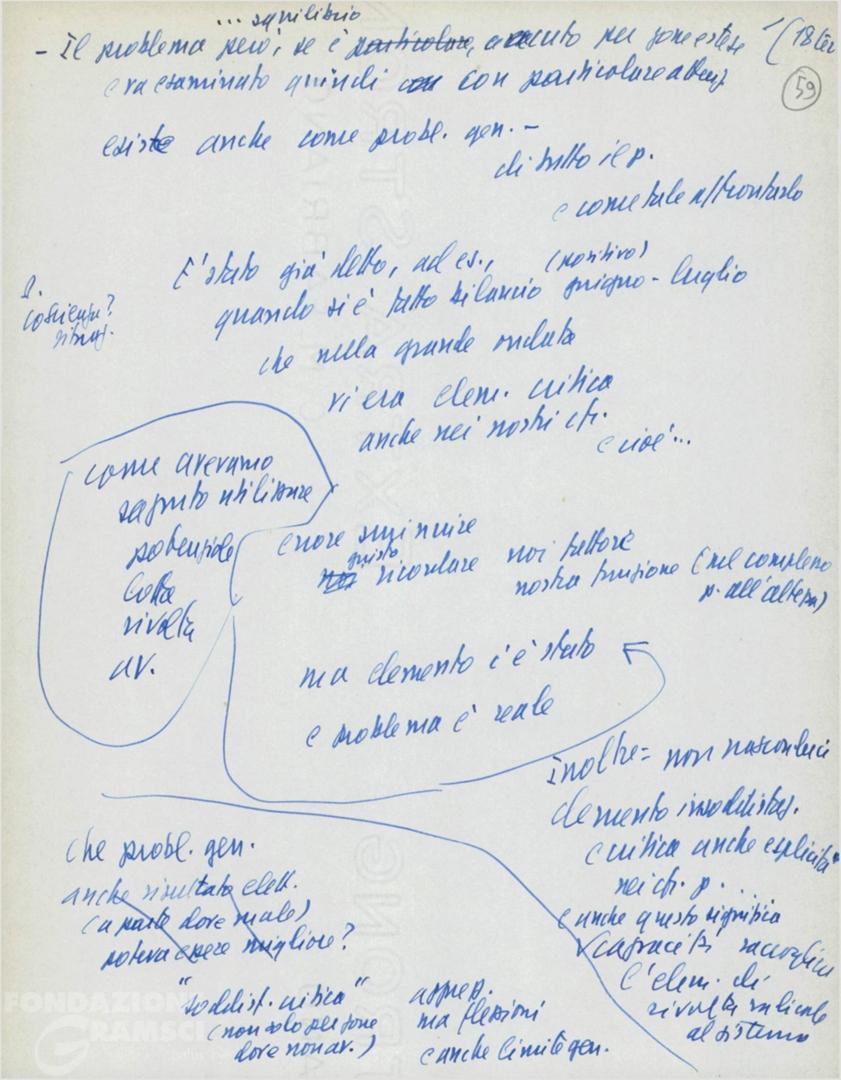 ... squilibrio
- Il problema però, se è particolare, acuto per zone estese
(18 ter
59
e va esaminato quindi con particolare attenz.
esiste anche come probl. gen. -
di tutto il p.
e come tale affrontarlo
È stato già detto, ad es., (positivo)
quando si è fatto bilancio giugno - luglio
che nella grande ondata
vi era elem. critica
anche nei nostri cfr.
e cioè...
come avevamo
saputo utilizzare
potenziale
lotta
rivolta
av.
errore sminuire
giusto
ricordare noi fattore
nostra funzione (nel complesso
p. all'altezza)
ma elemento c'è stato
e problema è reale
Inoltre = non nasconderci
elemento insoddisfaz.
e critica anche esplicita
nei cfr. p. ...
e anche questo significa
capacità raccogliere
l'elem. di
rivolta radicale
al sistema
che probl. gen.
anche risultato elett.
(a parte dove male)
poteva essere migliore?
"soddisf. critica"
(non solo per zone
dove non av.)
ma flessioni
e anche limite gen.
FONDAZIONE
GRAMSCI